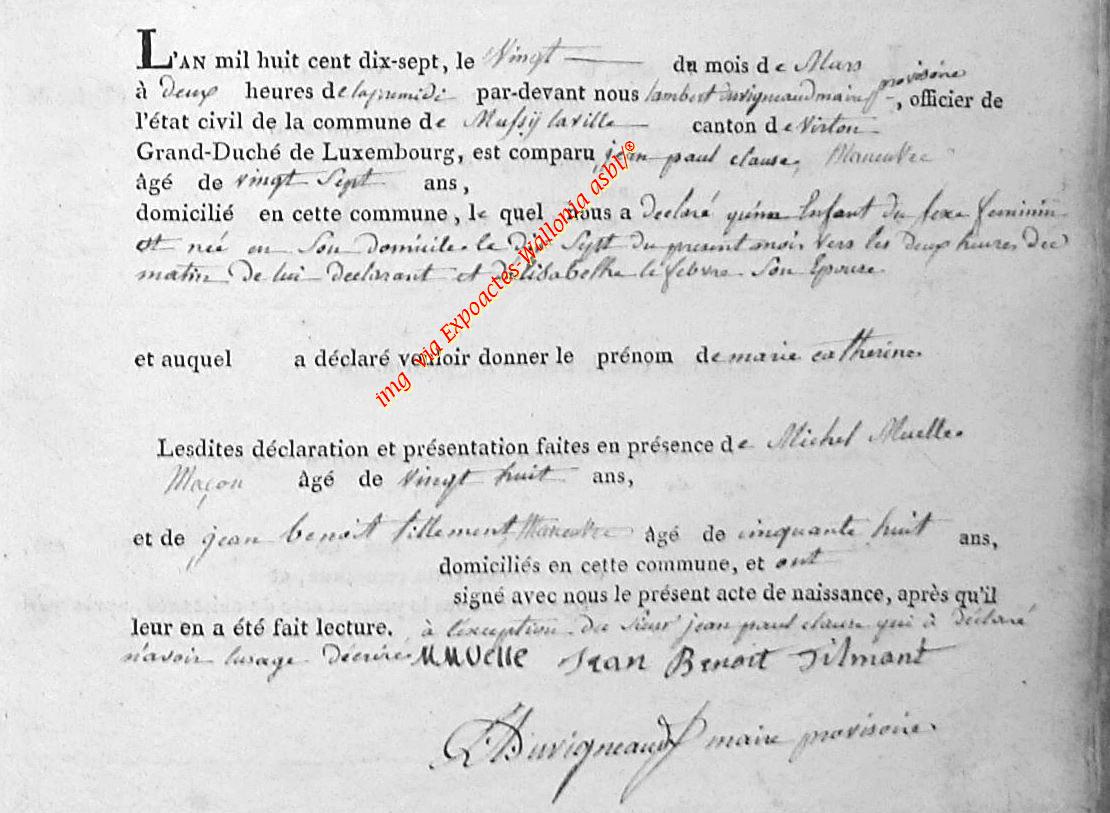 L'AN mil huit cent dix-sept, le Vingt du mois de Mars
à deux heures de lapremidi par-devant nous lambert duvigneaud maire provisoire, officier de
l'état civil de la commune de Mussÿ laville canton de Virton
Grand-Duché de Luxembourg, est comparu jean paul clause, Maneuvre
âgé de vingt Sept ans,
domicilié en cette commune, le quel nous a declaré qu'un Enfant du sexe feminin
est neé en Son domicile le dix Sept du present mois vers les deux heures de
matin de lui declarant et d'Elisabethe le febvre Son Epouse
et auquel a déclaré vouloir donner le prénom de marie catherine.
Lesdites déclaration et présentation faites en présence de Michel Muelle
Maçon âgé de vingt huit ans,
et de jean benoit tillement Maneuvre âgé de cinquante huit ans,
domiciliés en cette commune, et ont
signé avec nous le présent acte de naissance, après qu'il
leur en a été fait lecture. à l'exception du Sieur jean paul clause qui à déclaré
n'avoir lusage décrire MMUelle Jean Benoit Tilmant
L Duvigneaud maire provisoire.
img via Expoactes-Wallonia asbl/®